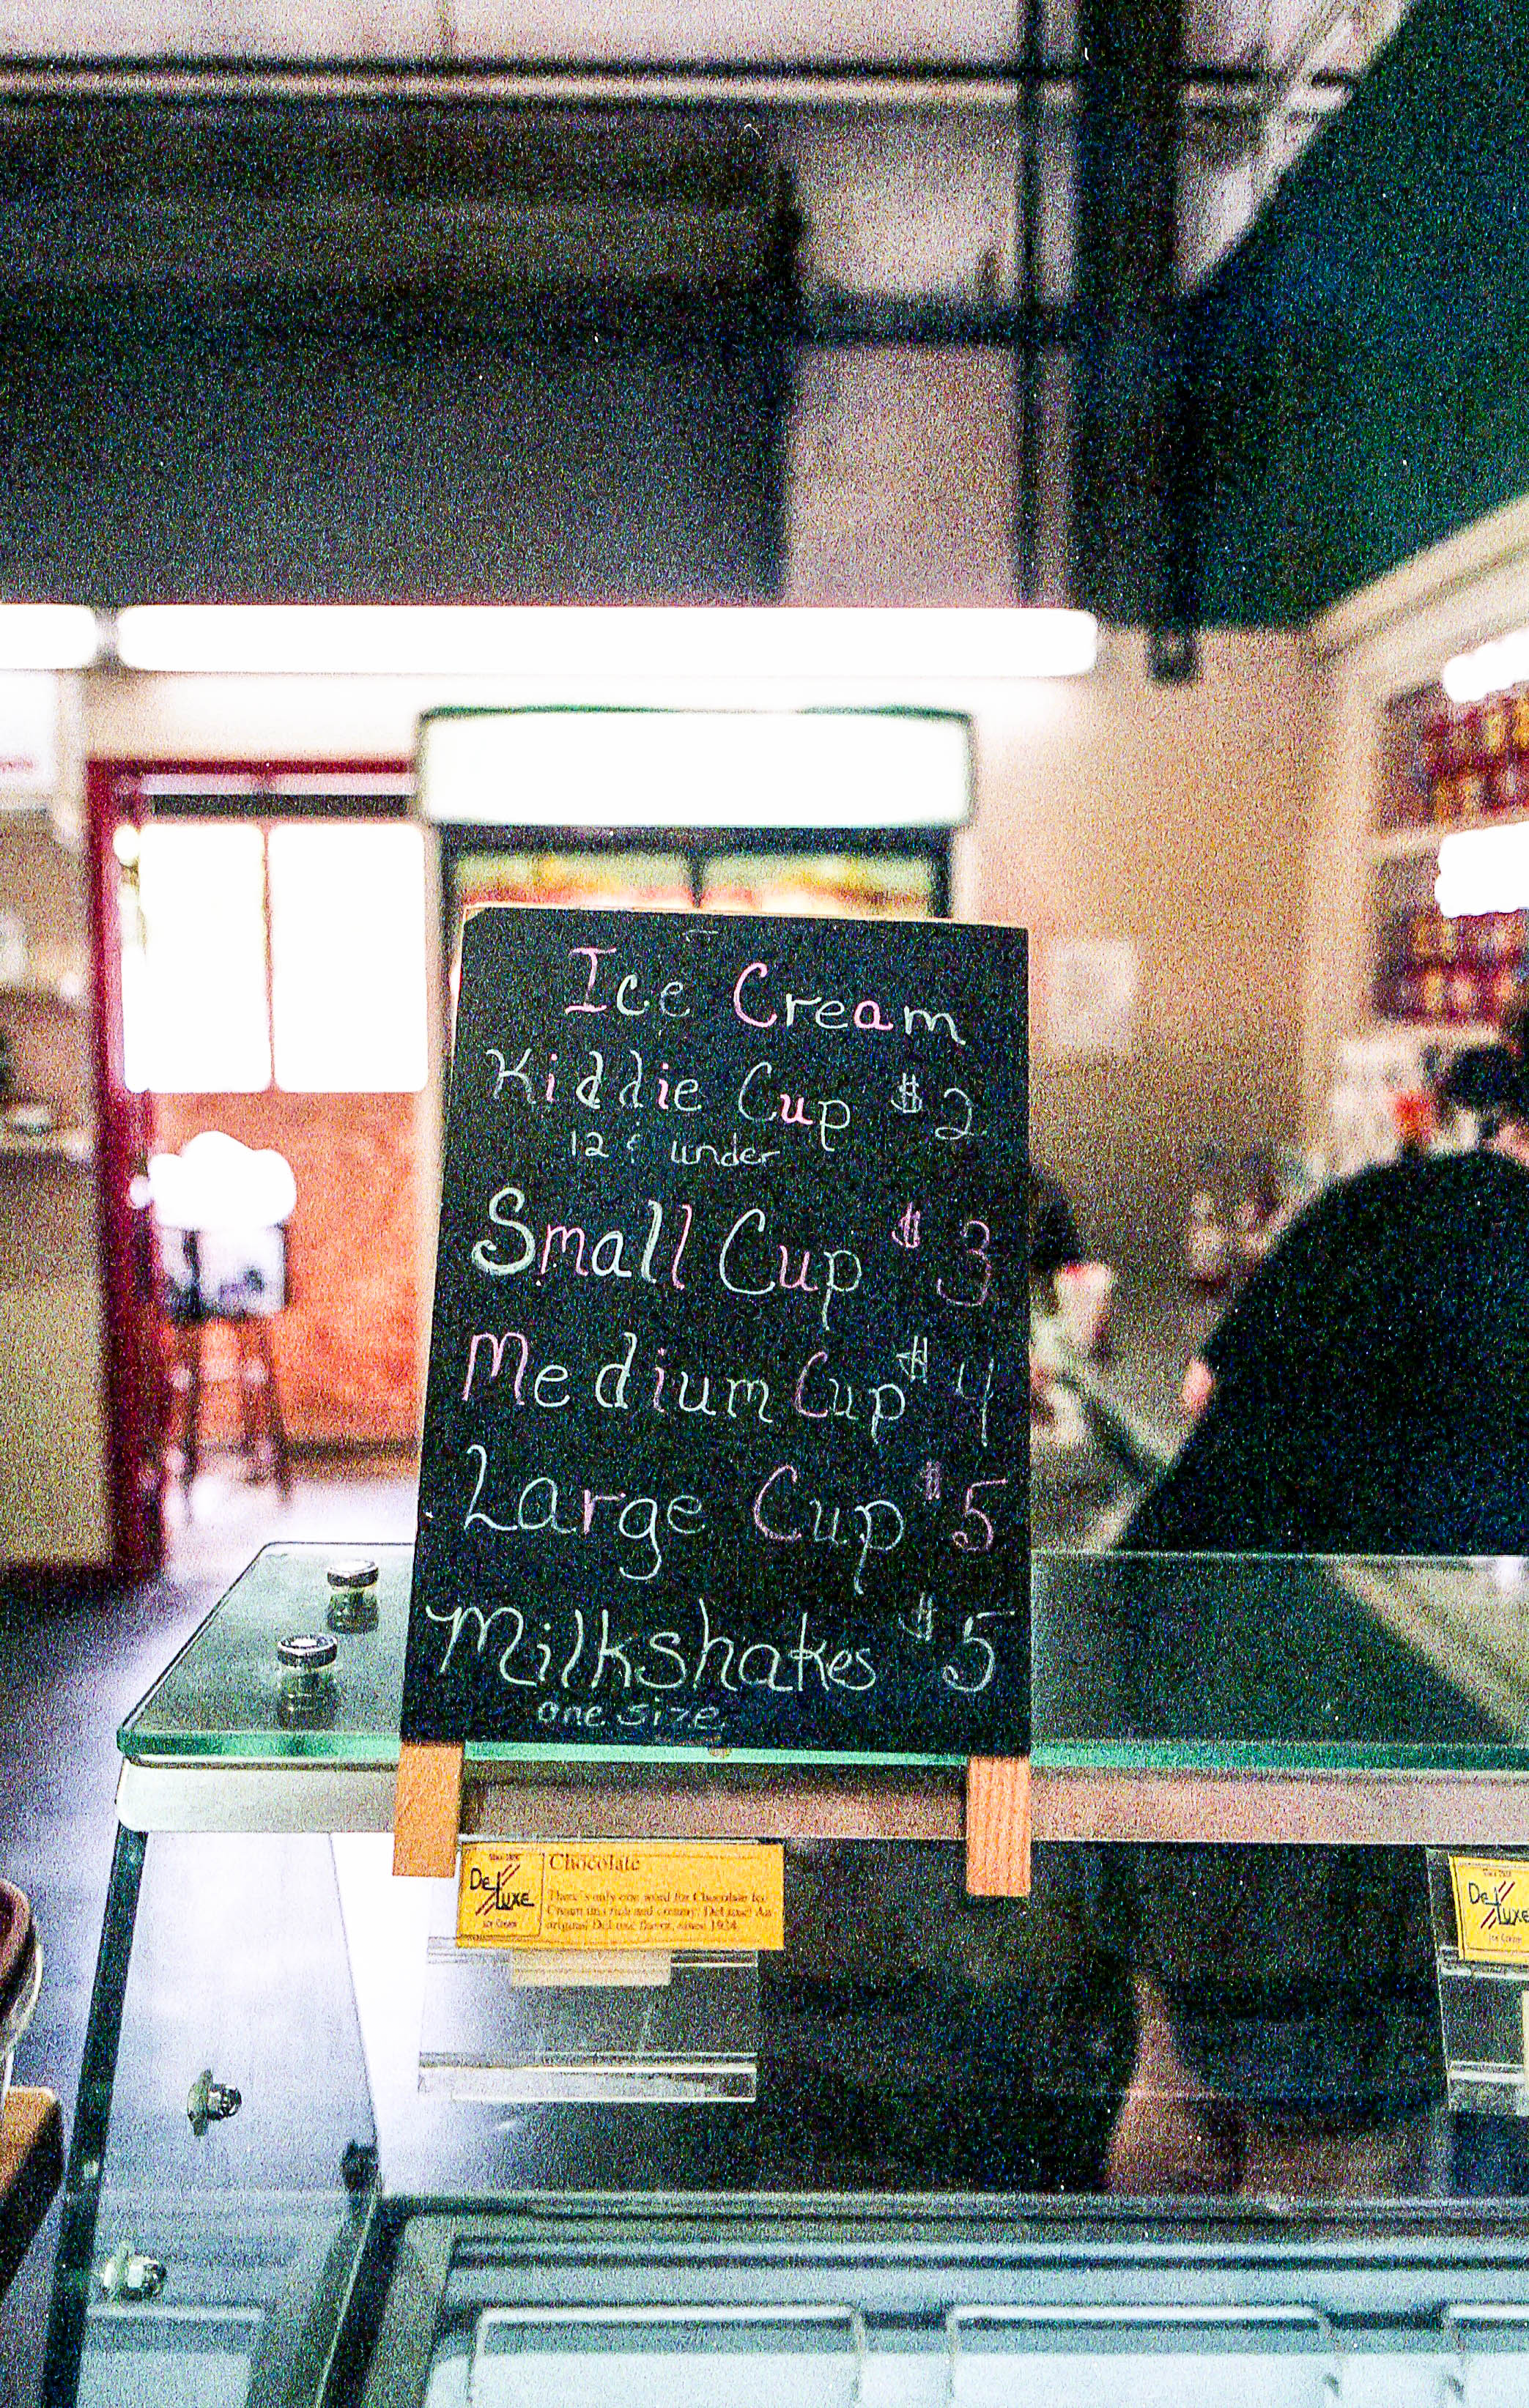 Ice Cream
Kiddie Cup $2
12 & under
Small Cup $3
Medium Cup $4
Large Cup $5
Milkshakes $5
one size
Since 1924
DeLuxe
Ice Cream
Chocolate
There's only one word for Chocolate Ice
Cream this rich and creamy: DeLuxe! An
original DeLuxe flavor, since 1924.
DeLuxe
Ice Cream